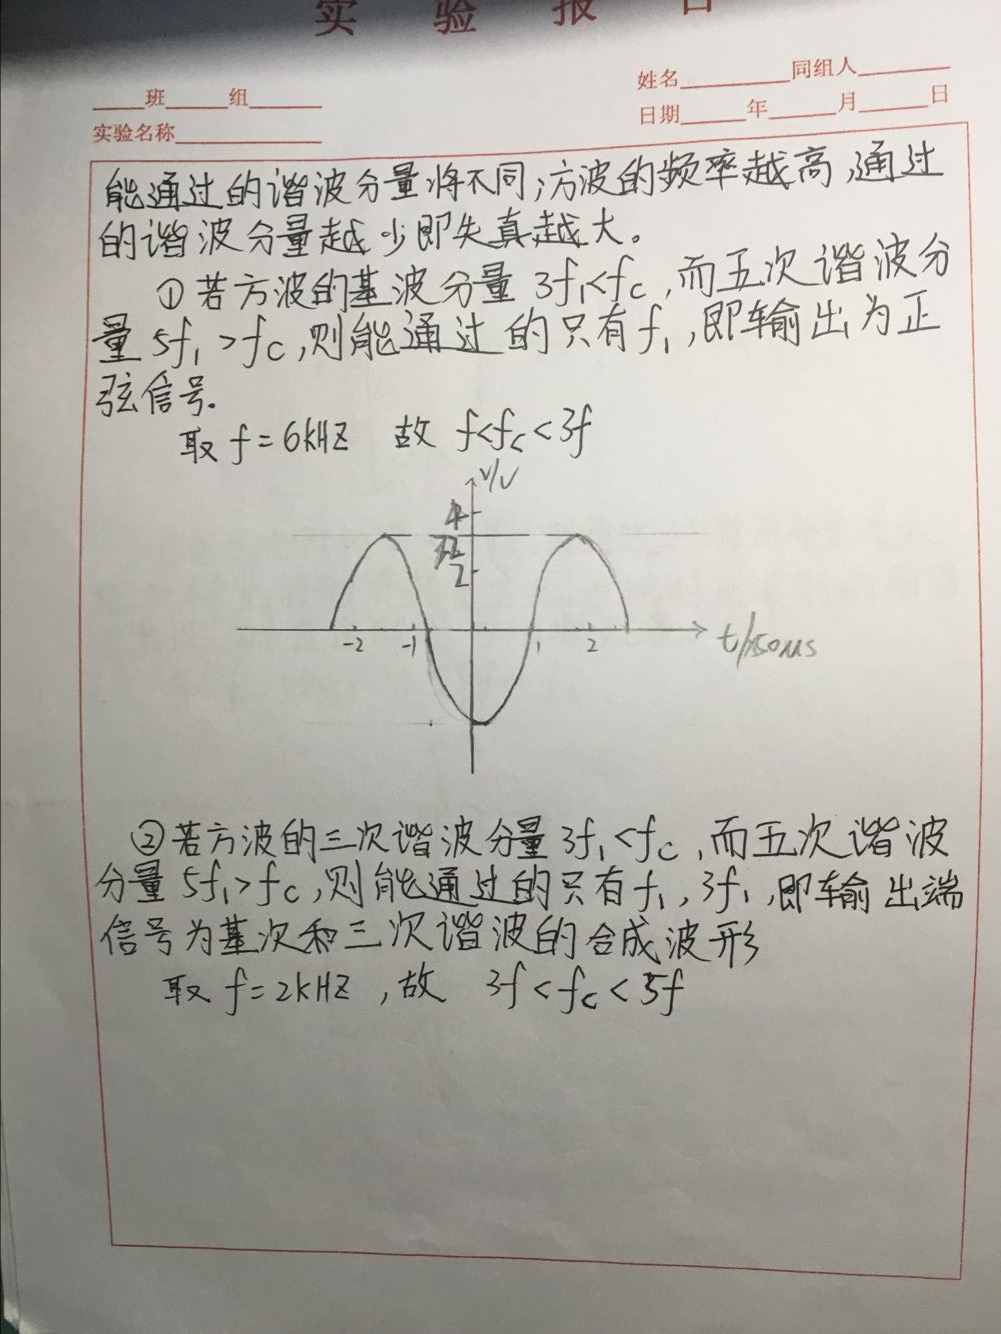 实 验 报 告
____班____组____ 姓名________同组人________
实验名称________ 日期____年____月____日
能通过的谐波分量将不同,方波的频率越高,通过
的谐波分量越少即失真越大。
①若方波的基波分量 3f₁<fc,而五次谐波分
量 5f₁>fc,则能通过的只有f₁,即输出为正
弦信号.
取 f=6kHZ 故 f<fc<3f
V/V
4
2
-2 -1 1 2
②若方波的三次谐波分量 3f₁<fc,而五次谐波
分量 5f₁>fc,则能通过的只有f₁,3f₁,即输出端
信号为基次和三次谐波的合成波形
取 f=2kHZ,故 3f<fc<5f